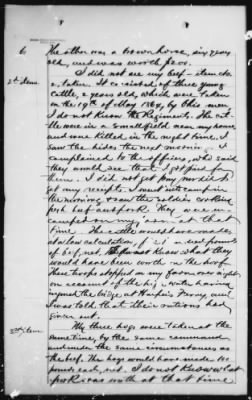 6. The other was a brown horse, six years
old, and was worth $200.
I did not see my beef - item No.
2, taken. It consisted of three young
cattle, 2 years old, which were taken
on the 19th of May 1864, by Ohio men
I do not know the Regiments. The cat-
tle were in a small field near my house,
and were killed in the night time. I
saw the hides the next morning. I
complained to the officers, who said
they would see that I got paid for
them. I did not get pay, nor did I
get any receipts. I went into camp in
the morning & saw the soldiers cooking
fresh beef and pork. They were en-
camped on my farm at that
time. The cattle would have made,
at a low calculation, pounds
of beef, net. I know what they
would have been worth on the hoof.
These troops stopped on my farm over night
on account of the high water having
injured the bridge at Harper's Ferry, and
I was told that their rations had
given out.
My three hogs were taken at the
same time, by the same command
and under the same circumstances as
the beef. The hogs would have made 100
pounds each, net. I do not know what
pork was worth at that time
2d item
3d item